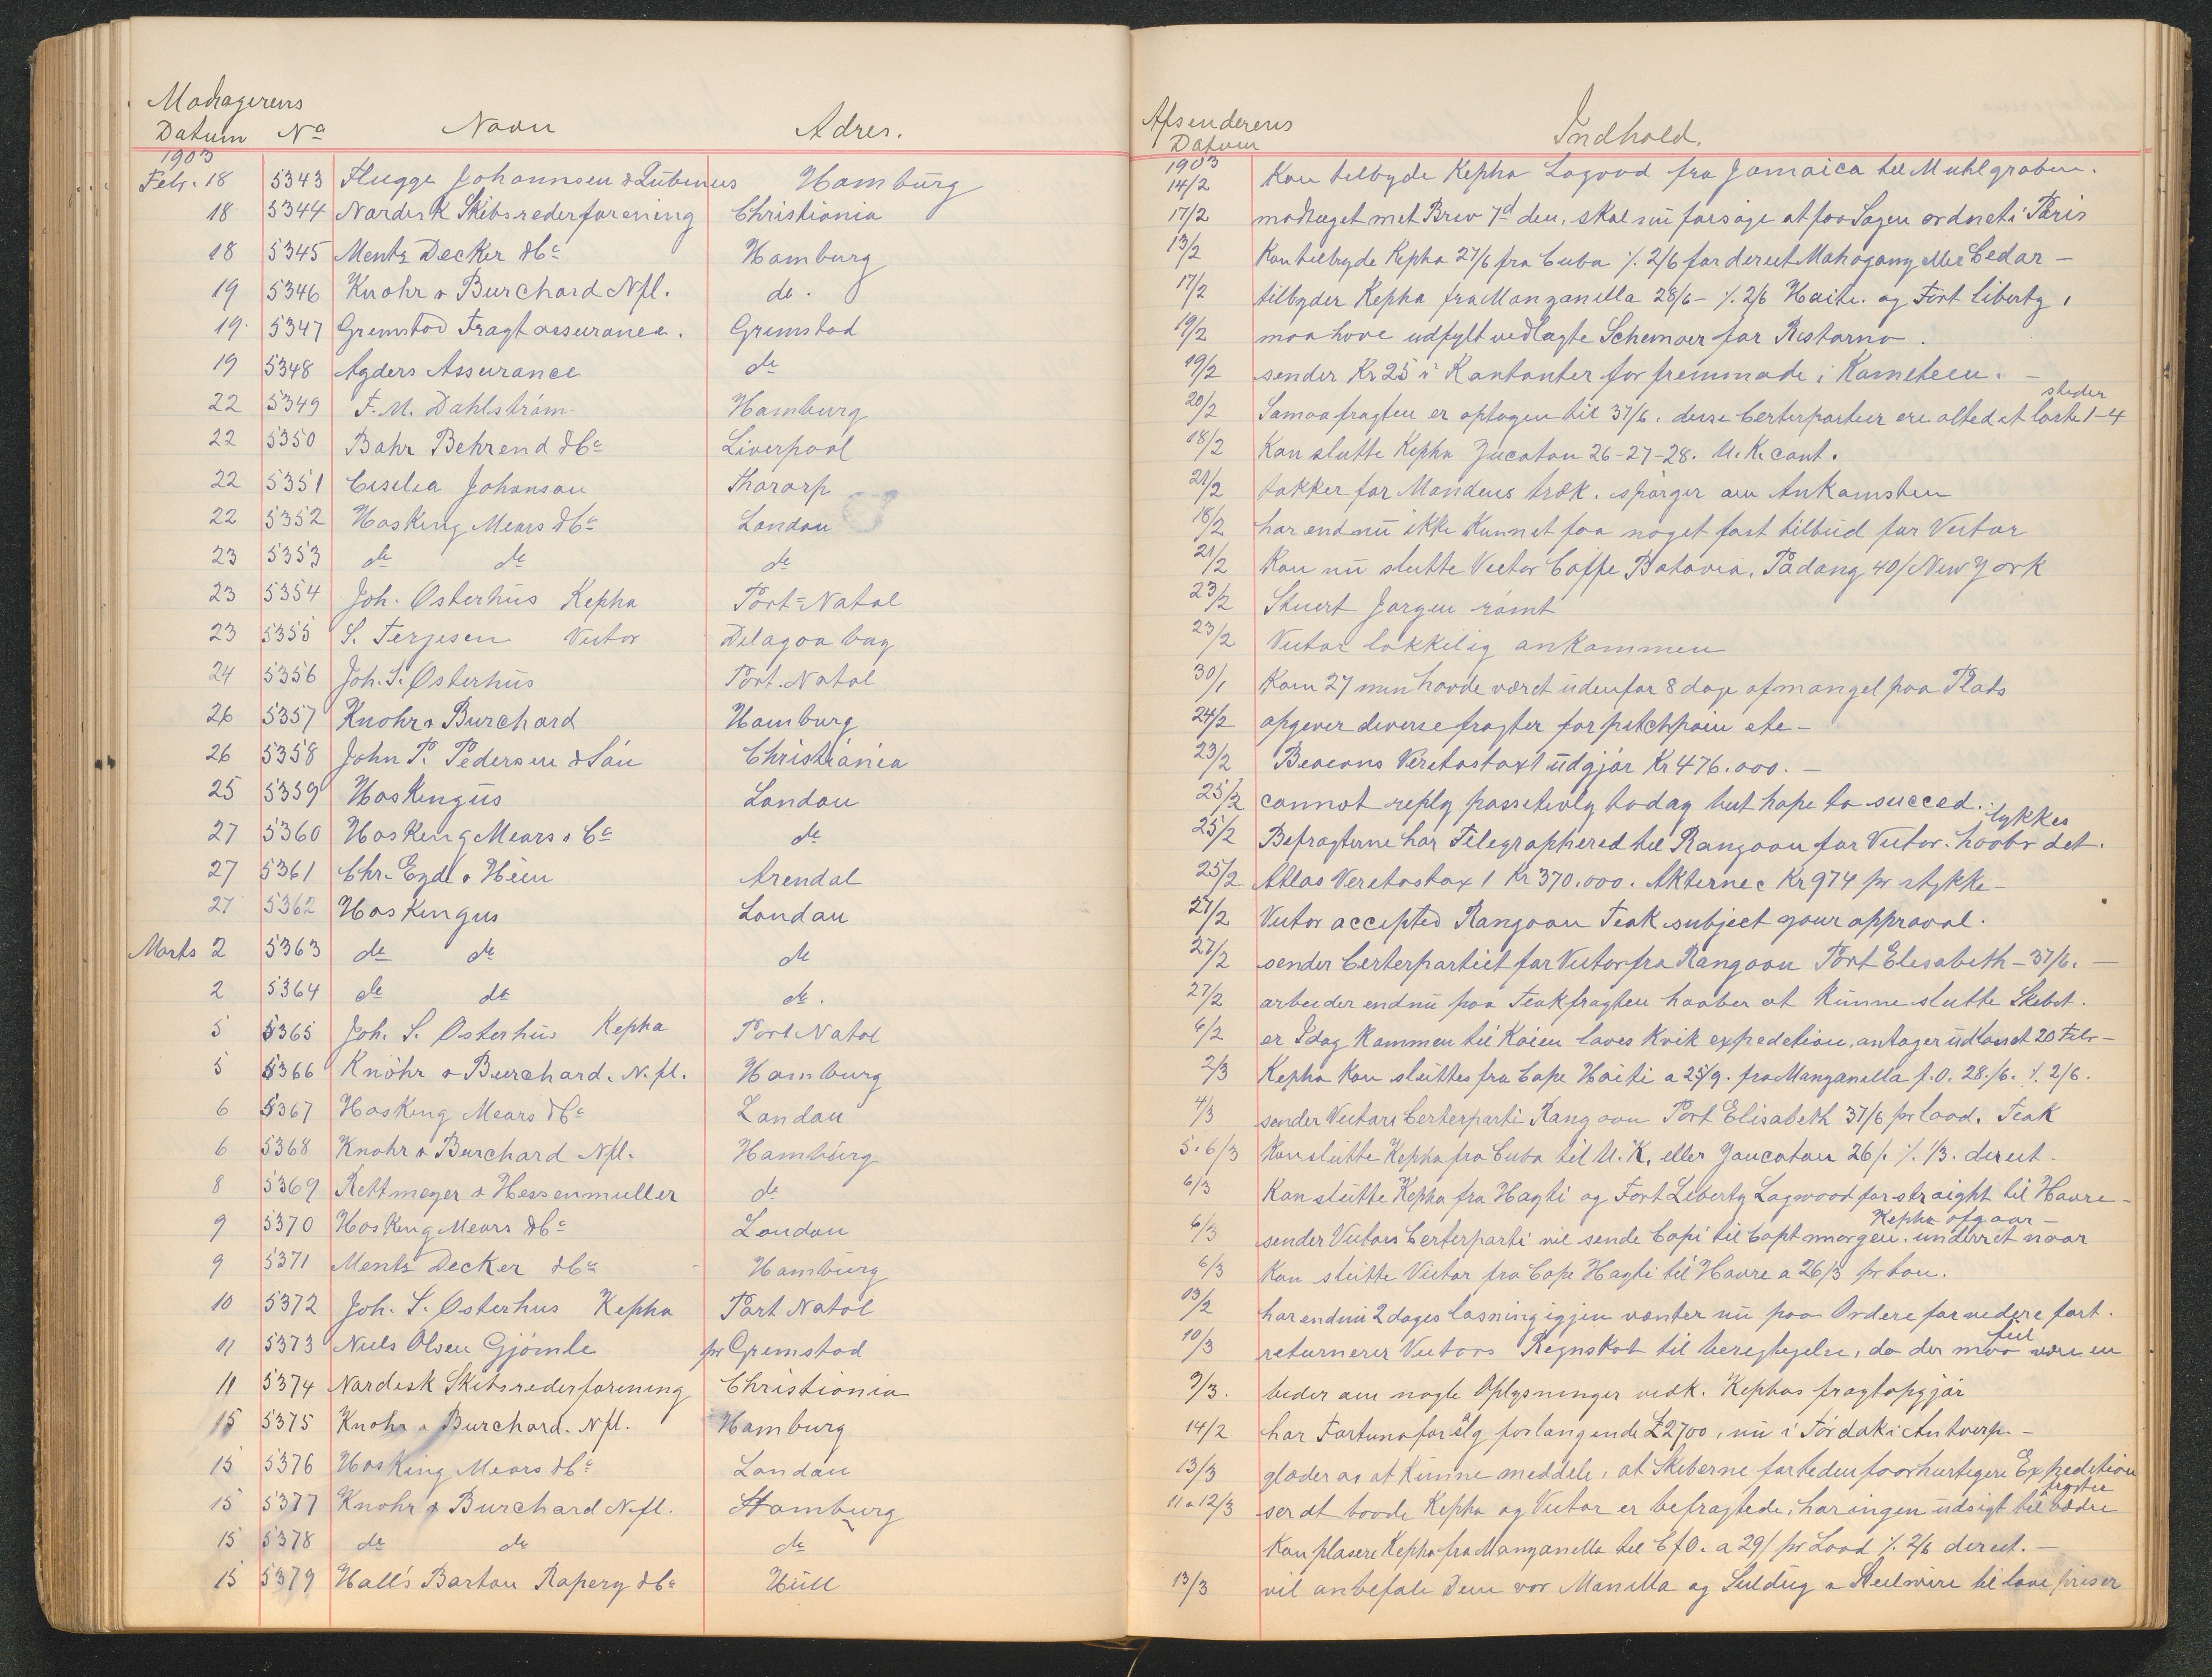 Modtagerens
Datum No Navn Adres.
1903
Febr. 18 5343 Flügge Johannsen & Lubenus Hamburg
18 5344 Nordisk Skibsrederforening Christiania
18 5345 Mentz Decker & Co Hamburg
19 5346 Knohr & Burchard Nfl. do.
19 5347 Grimstad Fragtassurance. Grimstad
19 5348 Agders Assurance do
22 5349 F. M. Dahlström Hamburg
22 5350 Bahr Behrend & Co Liverpool
22 5351 Cecilia Johanson Thorarp
22 5352 Hosking Mears & Co London
23 5353 do do do
23 5354 Joh. Osterhus Kepha Port-Natal
23 5355 S. Terjesen Victor Delagoa bay
24 5356 Joh. S. Osterhüs Port. Natal
26 5357 Knohr & Burchard Hamburg
26 5358 John P. Pedersen & Sön Christiania
25 5359 Hoskingus London
27 5360 Hosking Mears & Co do
27 5361 Chr. Eyde & Hein Arendal
27 5362 Hoskingus London
Marts 2 5363 do do do
2 5364 do do do.
5 5365 Joh. S. Osterhüs Kepha Port Natal
5 5366 Knöhr & Burchard. N. fl. Hamburg
6 5367 Hosking Mears & Co London
6 5368 Knohr & Burchard Nfl. Hamburg
8 5369 Rettmeyer & Hessenmuller do
9 5370 Hosking Mears & Co London
9 5371 Mentz Decker & Co Hamburg
10 5372 Joh. S. Osterhus Kepha Port Natal
11 5373 Niels Olsen Gjömle pr Grimstad
11 5374 Nordisk Skibsrederforening Christiania
15 5375 Knohr & Burchard. Nfl. Hamburg
15 5376 Hosking Mears & Co London
15 5377 Knohr & Burchard N.fl. Hamburg
15 5378 do do do
15 5379 Hall's Barton Ropery & Co Hüll
Afsenderens
Datum Indhold.
1903
14/2 Kan tilbyde Kepha Logood fra Jamaica til Muhlgraben.
17/2 modtaget mit Brev 7d den, skal nu forsøge at faa Sagen ordnet i Paris
13/2 Kan tilbyde Kepha 27/6 fra Cuba /. 2/6 for direct Mahogany eller Cedar –
17/2 tilbyder Kepha fra Manzanilla 28/6 – /. 2/6 Haiti. og Fort liberty,
19/2 maa have udfylt vedlagte Schemaer for Ristorno.
19/2 sender Kr 25 i Kontanter for fremmøde i Komiteen. –
20/2 Samoafragten er optagen til 37/6. disse Certerpartier ere altid at laste 1–4 steder
18/2 Kan slutte Kepha Jucatan 26–27–28. U.K. cont.
21/2 takker for Mandens træk. spörger om Ankomsten
18/2 har endnü ikke kunnet faa noget fast tilbüd for Victor
21/2 Kan nü slutte Victor Caffe Batavia, Padang 40/ New York
23/2 Stuert Jørgen römt
23/2 Victor lykkelig ankommen
30/1 Kom 27 men havde været üdenfor 8 dage af mangel paa Plads
24/2 opgiver diverse fragter for pitchpain etc –
23/2 Beacons Veritastaxt üdgjör Kr 476.000. –
25/2 cannot reply possitivly today but hope to succed.
25/2 Befragterne har Telegraphered til Rangoon for Victor. haaber det lykkes.
25/2 Atlas Veritastax 1 Kr 370.000. Akterne c Kr 974 pr stykke –
27/2 Victor accepted Rangoon Teak subject your approval.
27/2 sender Certerpartiet for Victor fra Rangoon Port Elisabeth – 37/6. –
27/2 arbeider endnü paa Teakfragten haaber at künne slutte Skibet.
6/2 er Idag Kommen til Kaien loves kvik expedetion, antager üdlosset 20 Febr –
2/3 Kepha kan slüttes fra Cape Haiti a 25/9. fra Manzanilla f.O. 28./6. /. 2/6.
4/3 sender Victors Certerparti Rangoon Port Elisabeth 37/6 pr load. Teak
5. 6/3 Kan slütte Kepha fra Cuba til U.K. eller Jaucatan 26/. /. 1/3. direct.
6/3 Kan slütte Kepha fra Hayti og Fort Liberty Logwood for straight til Havre –
6/3 sender Victors Certerparti vil sende Copi til Capt morgen. underret naar Kepha afgaar –
6/3 Kan slütte Victor fra Cape Hayti til Havre a 26/3 pr ton.
13/2 har endnü 2 dages losning igjen venter nü paa Ordere for videre fart.
10/3 returnerer Victors Regnskab til berigtigelse, da der maa være en feil
9/3. beder om nogle Oplysninger vedk. Kephas fragtopgjör
14/2 har Fortuna for Salg forlangende £2700, nü i Tördok i Antverp. –
13/3 glæder os at künne meddele, at Skiberne forteden faar hurtigere Expedition
11 a 12/3 ser at baade Kepha og Victor er befragtede, har ingen üdsigt til bedre fragter
Kan plasere Kepha fra Manzanilla til C f O. a 29/ pr Load /. 2/6 direct. –
13/3 vil anbefale Dem vor Manilla og Sildüg a Steilwire til lave priser